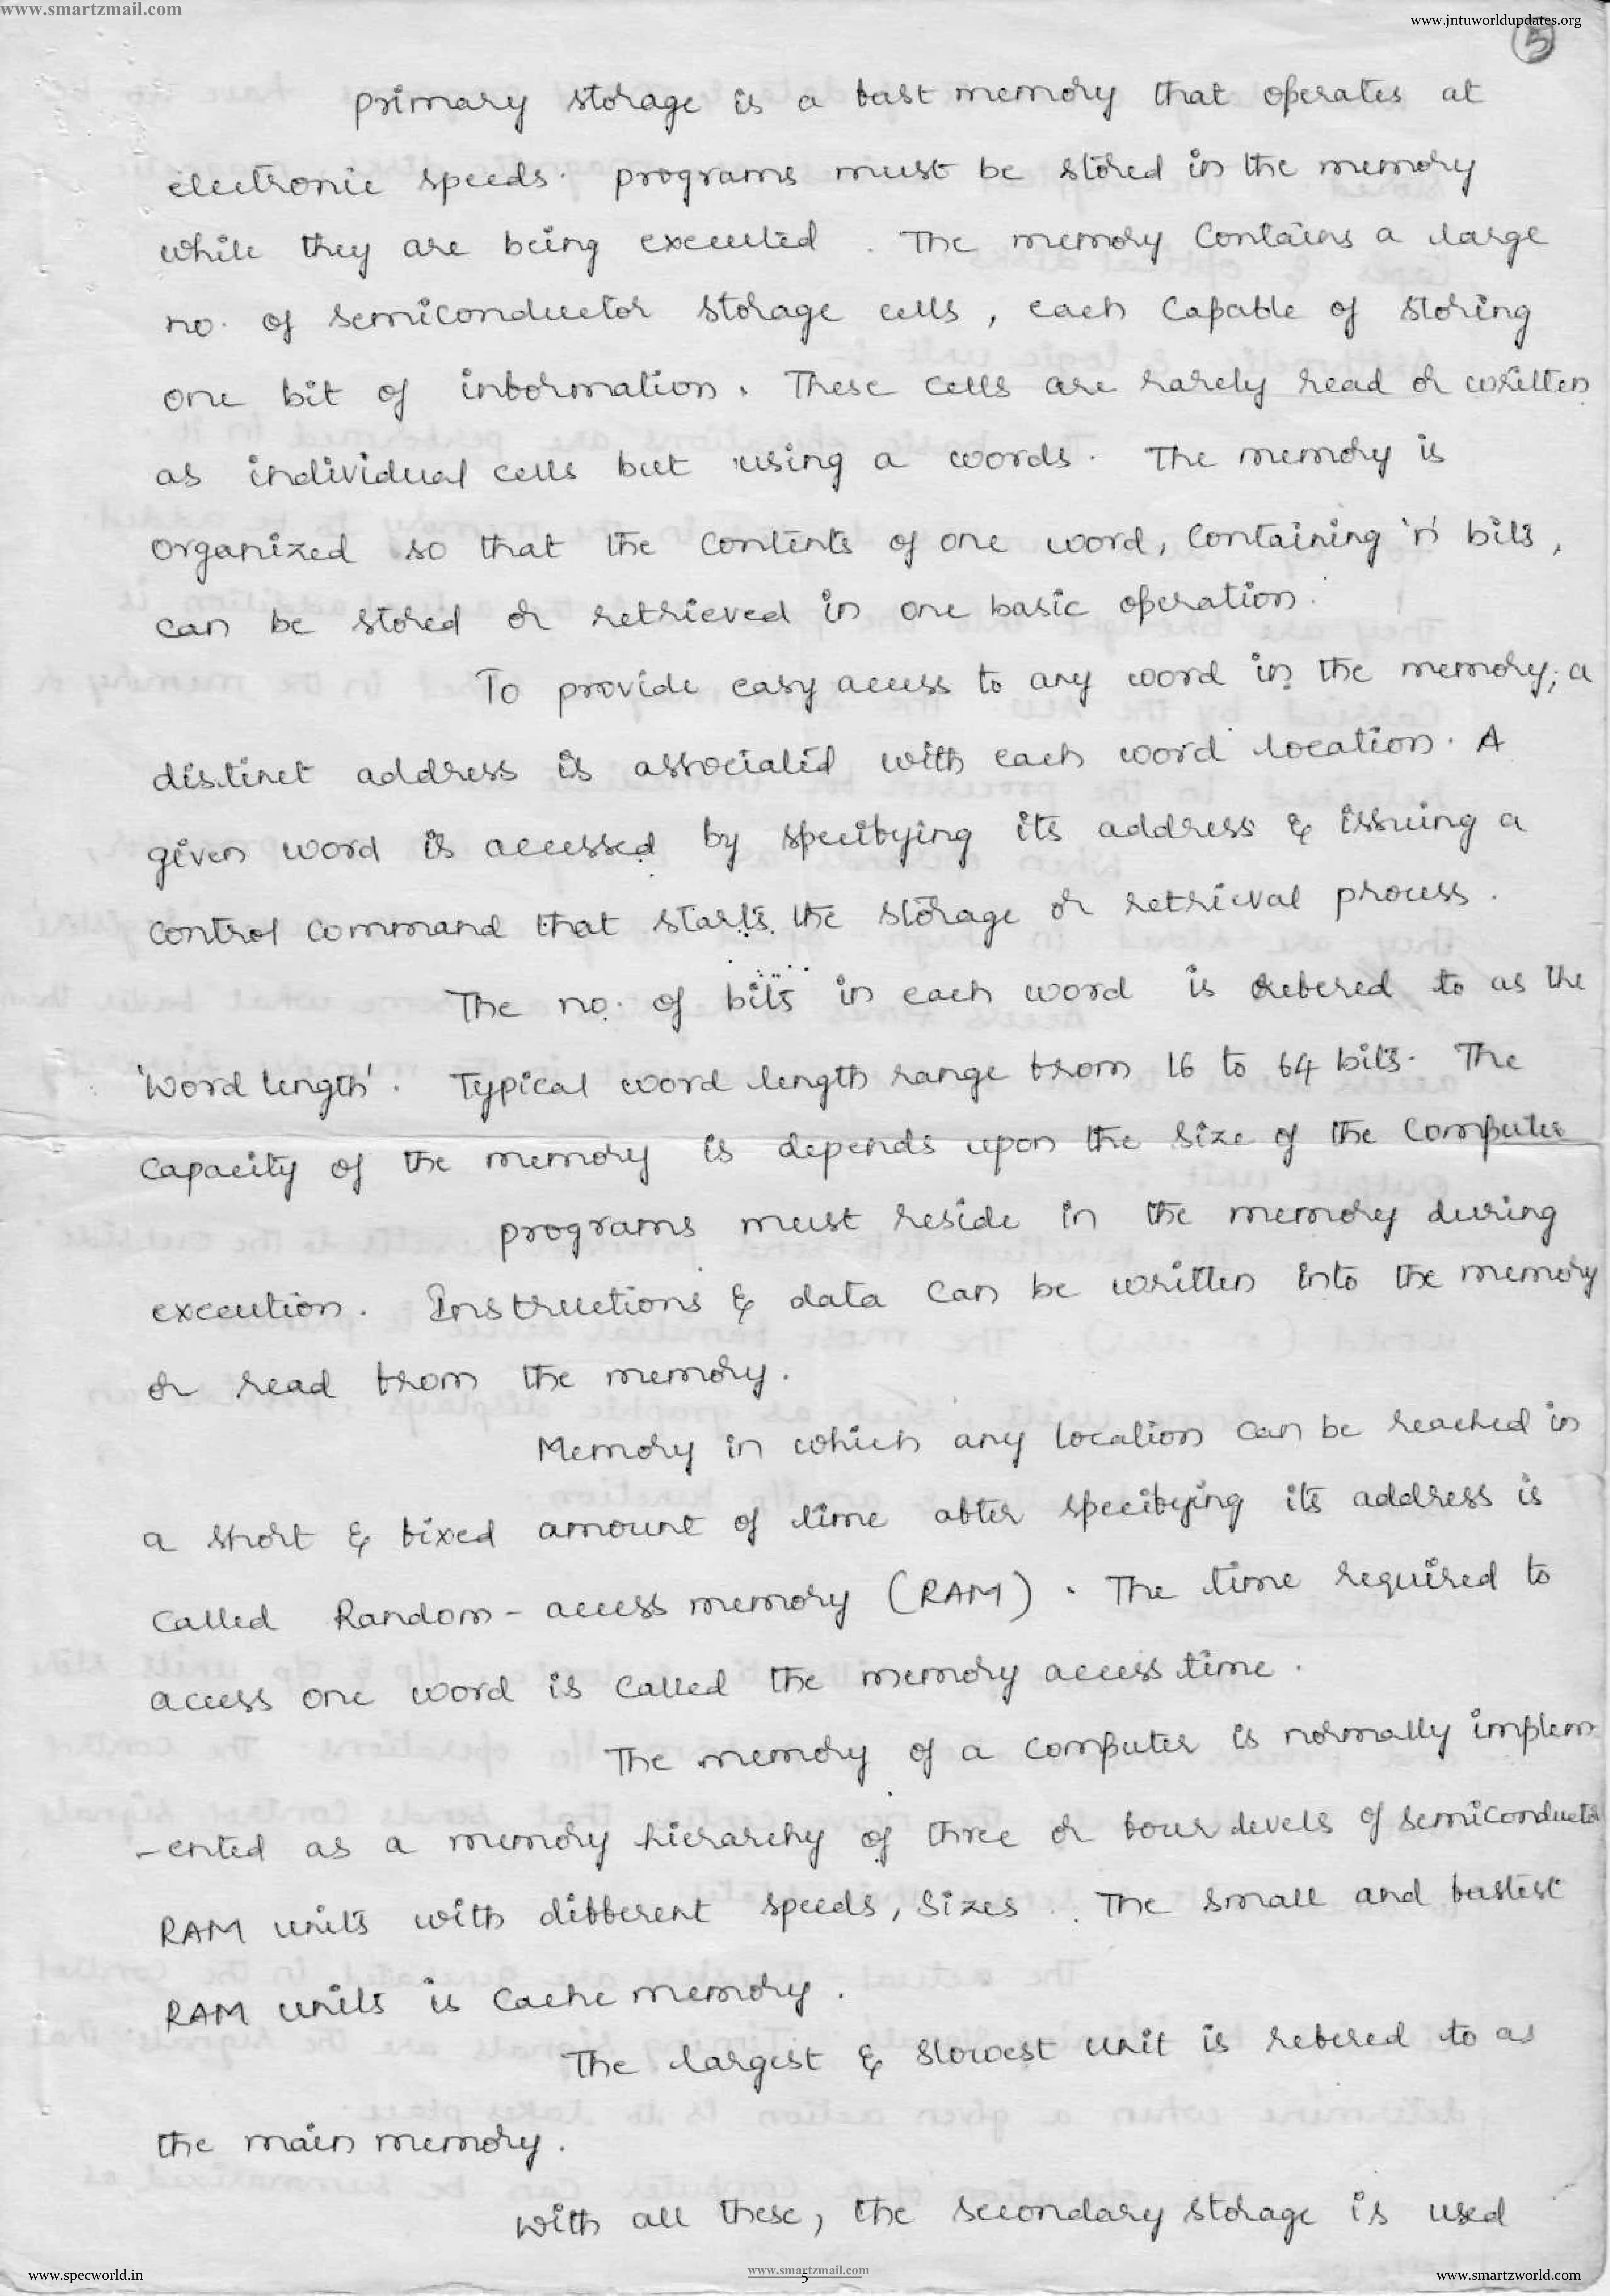 www.smartzmail.com
www.jntuworldupdates.org
5
primary storage is a fast memory that operates at
electronic speeds. programs must be stored in the memory
while they are being executed. The memory contains a large
no. of semiconductor storage cells, each capable of storing
one bit of information. These cells are rarely read or written
as individual cells but using a words. The memory is
organized so that the contents of one word, containing 'n' bits,
can be stored or retrieved in one basic operation.
To provide easy access to any word in the memory, a
distinct address is associated with each word location. A
given word is accessed by specifying its address & issuing a
control command that starts the storage or retrieval process.
The no. of bits in each word is refered to as the
'Word length'. Typical word length range from 16 to 64 bits. The
capacity of the memory is depends upon the size of the computer
programs must reside in the memory during
execution. Instructions & data can be written into the memory
or read from the memory.
Memory in which any location can be reached in
a short & fixed amount of time after specifying its address is
called Random-access memory (RAM). The time required to
access one word is called the memory access time.
The memory of a computer is normally implem
-ented as a memory hierarchy of three or four levels of semiconductor
RAM units with different speeds, sizes. The small and fastest
RAM units is cache memory.
The largest & slowest unit is refered to as
the main memory.
With all these, the secondary storage is used
www.specworld.in
www.smartzmail.com
5
www.smartzworld.com